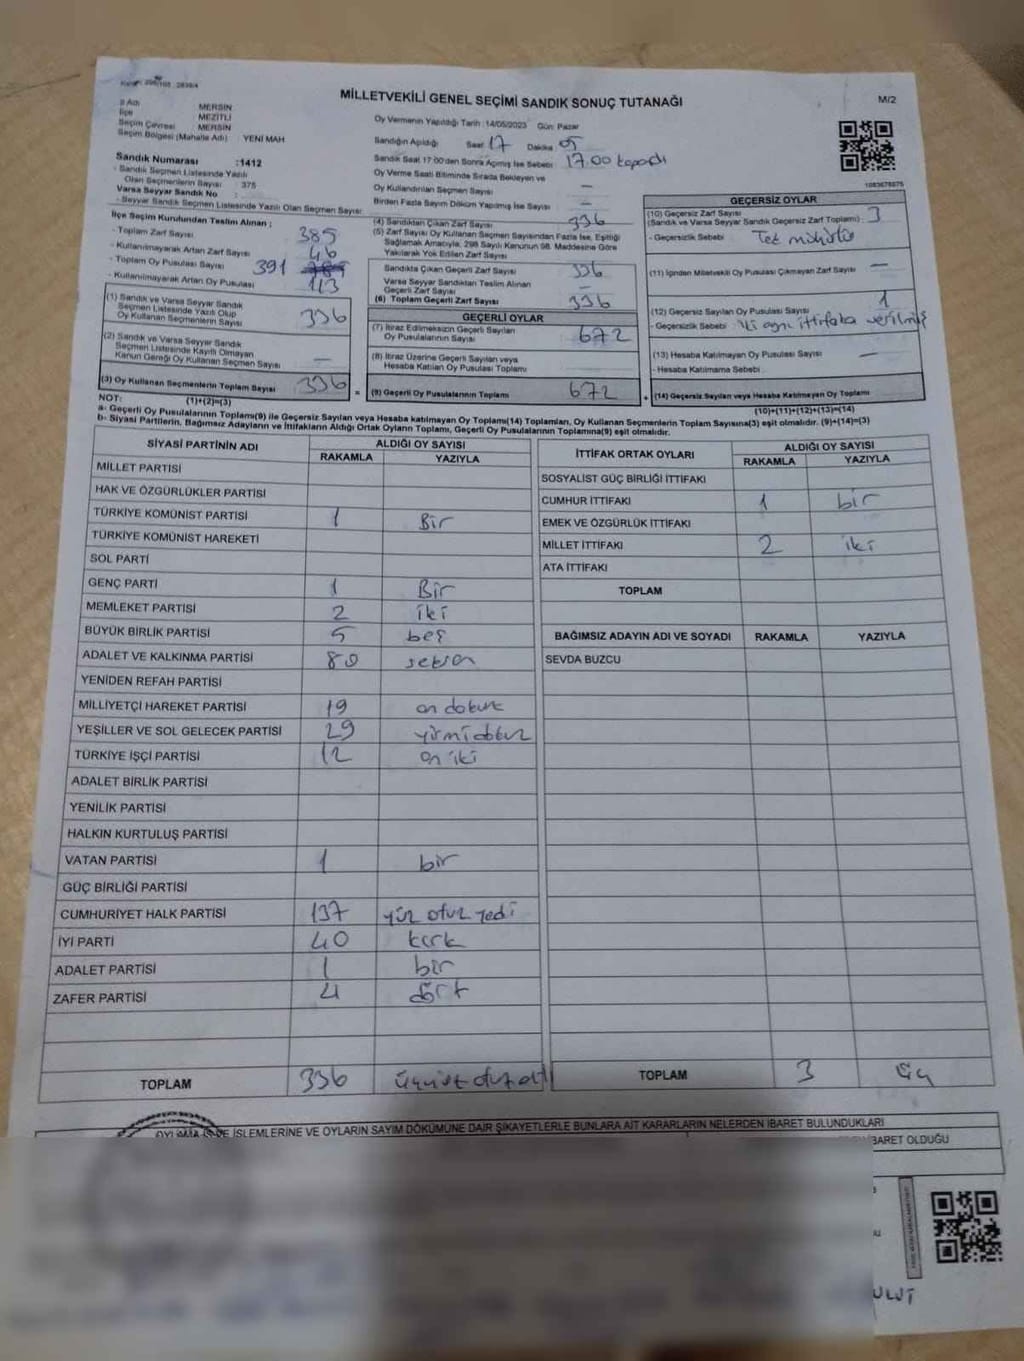 MİLLETVEKİLİ GENEL SEÇİMİ SANDIK SONUÇ TUTANAĞI
M/2
İl Adı MERSİN
İlçe MEZİTLİ
Seçim Çevresi MERSİN
Seçim Bölgesi (Mahalle Adı) YENİ MAH
Sandık Numarası :1412
- Sandık Seçmen Listesinde Yazılı
Olan Seçmenlerin Sayısı 375
Varsa Seyyar Sandık No
- Seyyar Sandık Seçmen Listesinde Yazılı Olan Seçmen Sayısı
İlçe Seçim Kurulundan Teslim Alınan ;
- Toplam Zarf Sayısı 385
- Kullanılmayarak Artan Zarf Sayısı 46
- Toplam Oy Pusulası Sayısı 391
- Kullanılmayarak Artan Oy Pusulası 113
(1) Sandık ve Varsa Seyyar Sandık
Seçmen Listesinde Yazılı Olup
Oy Kullanan Seçmenlerin Sayısı 336
(2) Sandık ve Varsa Seyyar Sandık
Seçmen Listesinde Kayıtlı Olmayan
Kanun Gereği Oy Kullanan Seçmen Sayısı —
(3) Oy Kullanan Seçmenlerin Toplam Sayısı 336
(1)+(2)=(3)
Oy Vermenin Yapıldığı Tarih :14/05/2023 Gün: Pazar
Sandığın Açıldığı Saat 17 Dakika 05
Sandık Saat 17:00'den Sonra Açılmış İse Sebebi 17.00 kapandı
Oy Verme Saati Bitiminde Sırada Bekleyen ve
Oy Kullandırılan Seçmen Sayısı —
Birden Fazla Sayım Döküm Yapılmış İse Sayısı —
(4) Sandıktan Çıkan Zarf Sayısı 336
(5) Zarf Sayısı Oy Kullanan Seçmen Sayısından Fazla İse, Eşitliği
Sağlamak Amacıyla, 298 Sayılı Kanunun 98. Maddesine Göre
Yakılarak Yok Edilen Zarf Sayısı
Sandıkta Çıkan Geçerli Zarf Sayısı 336
Varsa Seyyar Sandıktan Teslim Alınan
Geçerli Zarf Sayısı —
(6) Toplam Geçerli Zarf Sayısı 336
GEÇERLİ OYLAR
(7) İtiraz Edilmeksizin Geçerli Sayılan
Oy Pusulalarının Sayısı 672
(8) İtiraz Üzerine Geçerli Sayılan veya
Hesaba Katılan Oy Pusulası Toplamı
(9) Geçerli Oy Pusulalarının Toplamı 672
1083678675
GEÇERSİZ OYLAR
(10) Geçersiz Zarf Sayısı 3
(Sandık ve Varsa Seyyar Sandık Geçersiz Zarf Toplamı)
- Geçersizlik Sebebi Tek mühürlü
(11) İçinden Milletvekili Oy Pusulası Çıkmayan Zarf Sayısı —
(12) Geçersiz Sayılan Oy Pusulası Sayısı 1
- Geçersizlik Sebebi İki ayrı ittifaka verilmiş
(13) Hesaba Katılmayan Oy Pusulası Sayısı —
- Hesaba Katılmama Sebebi
(14) Geçersiz Sayılan veya Hesaba Katılmayan Oy Toplamı
(10)+(11)+(12)+(13)=(14)
NOT:
a- Geçerli Oy Pusulalarının Toplamı(9) ile Geçersiz Sayılan veya Hesaba katılmayan Oy Toplamı(14) Toplamları, Oy Kullanan Seçmenlerin Toplam Sayısına(3) eşit olmalıdır. (9)+(14)=(3)
b- Siyasi Partilerin, Bağımsız Adayların ve İttifakların Aldığı Ortak Oyların Toplamı, Geçerli Oy Pusulalarının Toplamına(9) eşit olmalıdır.
SİYASİ PARTİNİN ADI ALDIĞI OY SAYISI
RAKAMLA YAZIYLA
MİLLET PARTİSİ
HAK VE ÖZGÜRLÜKLER PARTİSİ
TÜRKİYE KOMÜNİST PARTİSİ 1 Bir
TÜRKİYE KOMÜNİST HAREKETİ
SOL PARTİ
GENÇ PARTİ 1 Bir
MEMLEKET PARTİSİ 2 iki
BÜYÜK BİRLİK PARTİSİ 5 beş
ADALET VE KALKINMA PARTİSİ 80 seksen
YENİDEN REFAH PARTİSİ
MİLLİYETÇİ HAREKET PARTİSİ 19 on dokuz
YEŞİLLER VE SOL GELECEK PARTİSİ 29 yirmi dokuz
TÜRKİYE İŞÇİ PARTİSİ 12 on iki
ADALET BİRLİK PARTİSİ
YENİLİK PARTİSİ
HALKIN KURTULUŞ PARTİSİ
VATAN PARTİSİ 1 bir
GÜÇ BİRLİĞİ PARTİSİ
CUMHURİYET HALK PARTİSİ 137 yüz otuz yedi
İYİ PARTİ 40 kırk
ADALET PARTİSİ 1 bir
ZAFER PARTİSİ 4 dört
TOPLAM 336 üçyüz otuz altı
İTTİFAK ORTAK OYLARI ALDIĞI OY SAYISI
RAKAMLA YAZIYLA
SOSYALİST GÜÇ BİRLİĞİ İTTİFAKI
CUMHUR İTTİFAKI 1 bir
EMEK VE ÖZGÜRLÜK İTTİFAKI
MİLLET İTTİFAKI 2 iki
ATA İTTİFAKI
TOPLAM
BAĞIMSIZ ADAYIN ADI VE SOYADI RAKAMLA YAZIYLA
SEVDA BUZCU
TOPLAM 3 üç
İŞLEMLERİNE VE OYLARIN SAYIM DÖKÜMÜNE DAİR ŞİKAYETLERLE BUNLARA AİT KARARLARIN NELERDEN İBARET BULUNDUKLARI
İBARET OLDUĞU